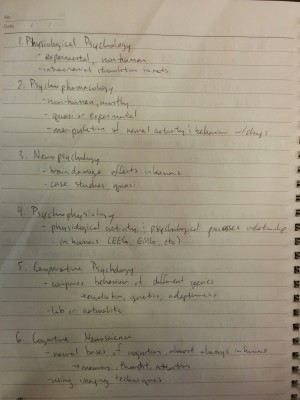 No.
Date
1. Physiological Psychology
- experimental, non-human
- intracranial stimulation in rats
2. Psychopharmacology
- non-human, mostly
- quasi or experimental
- manipulation of neural activity & behaviour w/ drugs
3. Neuropsychology
- brain damage effects in humans
- case studies, quasi
4. Psychophysiology
- physiological activity & psychological processes relationship
in humans (EEGs, EMGs, etc)
5. Comparative Psychology
- compares behaviour of different species
→ evolution, genetics, adaptiveness
- lab or naturalistic
6. Cognitive Neuroscience
- neural bases of cognition, almost always in humans
→ memory, thought, attention
- using imaging techniques